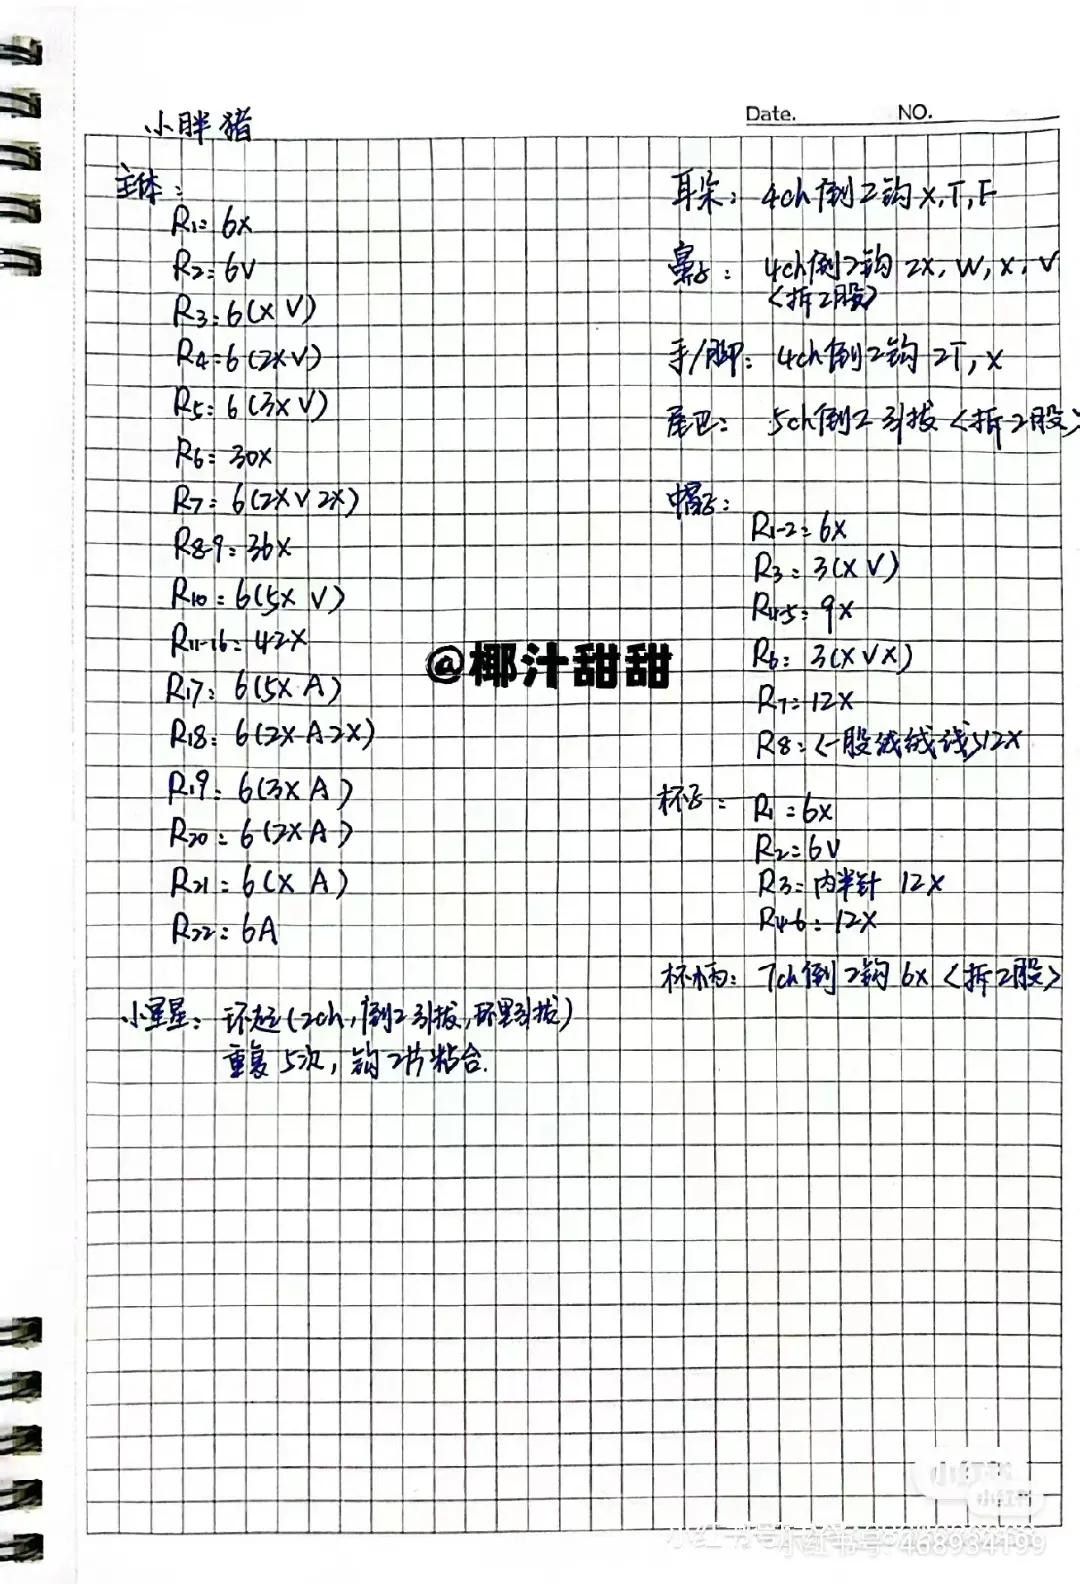 Date. NO.
小胖猪
主体:
R1= 6X
R2= 6V
R3= 6(X V)
R4= 6(2X V)
R5= 6(3X V)
R6= 30X
R7= 6(2X V 2X)
R8-9= 36X
R10= 6(5X V)
R11-16= 42X
R17: 6(5X A)
R18: 6(2X A 2X)
R19: 6(3X A)
R20: 6(2X A)
R21: 6(X A)
R22: 6A
小星星: 环起(2ch,倒2引拔,环里引拔)
重复5次,钩2片粘合.
耳朵: 4ch倒2钩X,T,F
鼻子: 4ch倒2钩 2X, W, X, V
<拆2股>
手/脚: 4ch倒2钩 2T, X
尾巴: 5ch倒2引拔<拆2股>
帽子:
R1-2=6X
R3: 3(X V)
R4-5: 9X
R6: 3(X V X)
R7=12X
R8: <一股绒绒线>12X
杯子: R1=6X
R2=6V
R3=内半针 12X
R4-6: 12X
杯柄: 7ch倒2钩6X<拆2股>
@椰汁甜甜
小红书
小红书
小红书号: 468934199